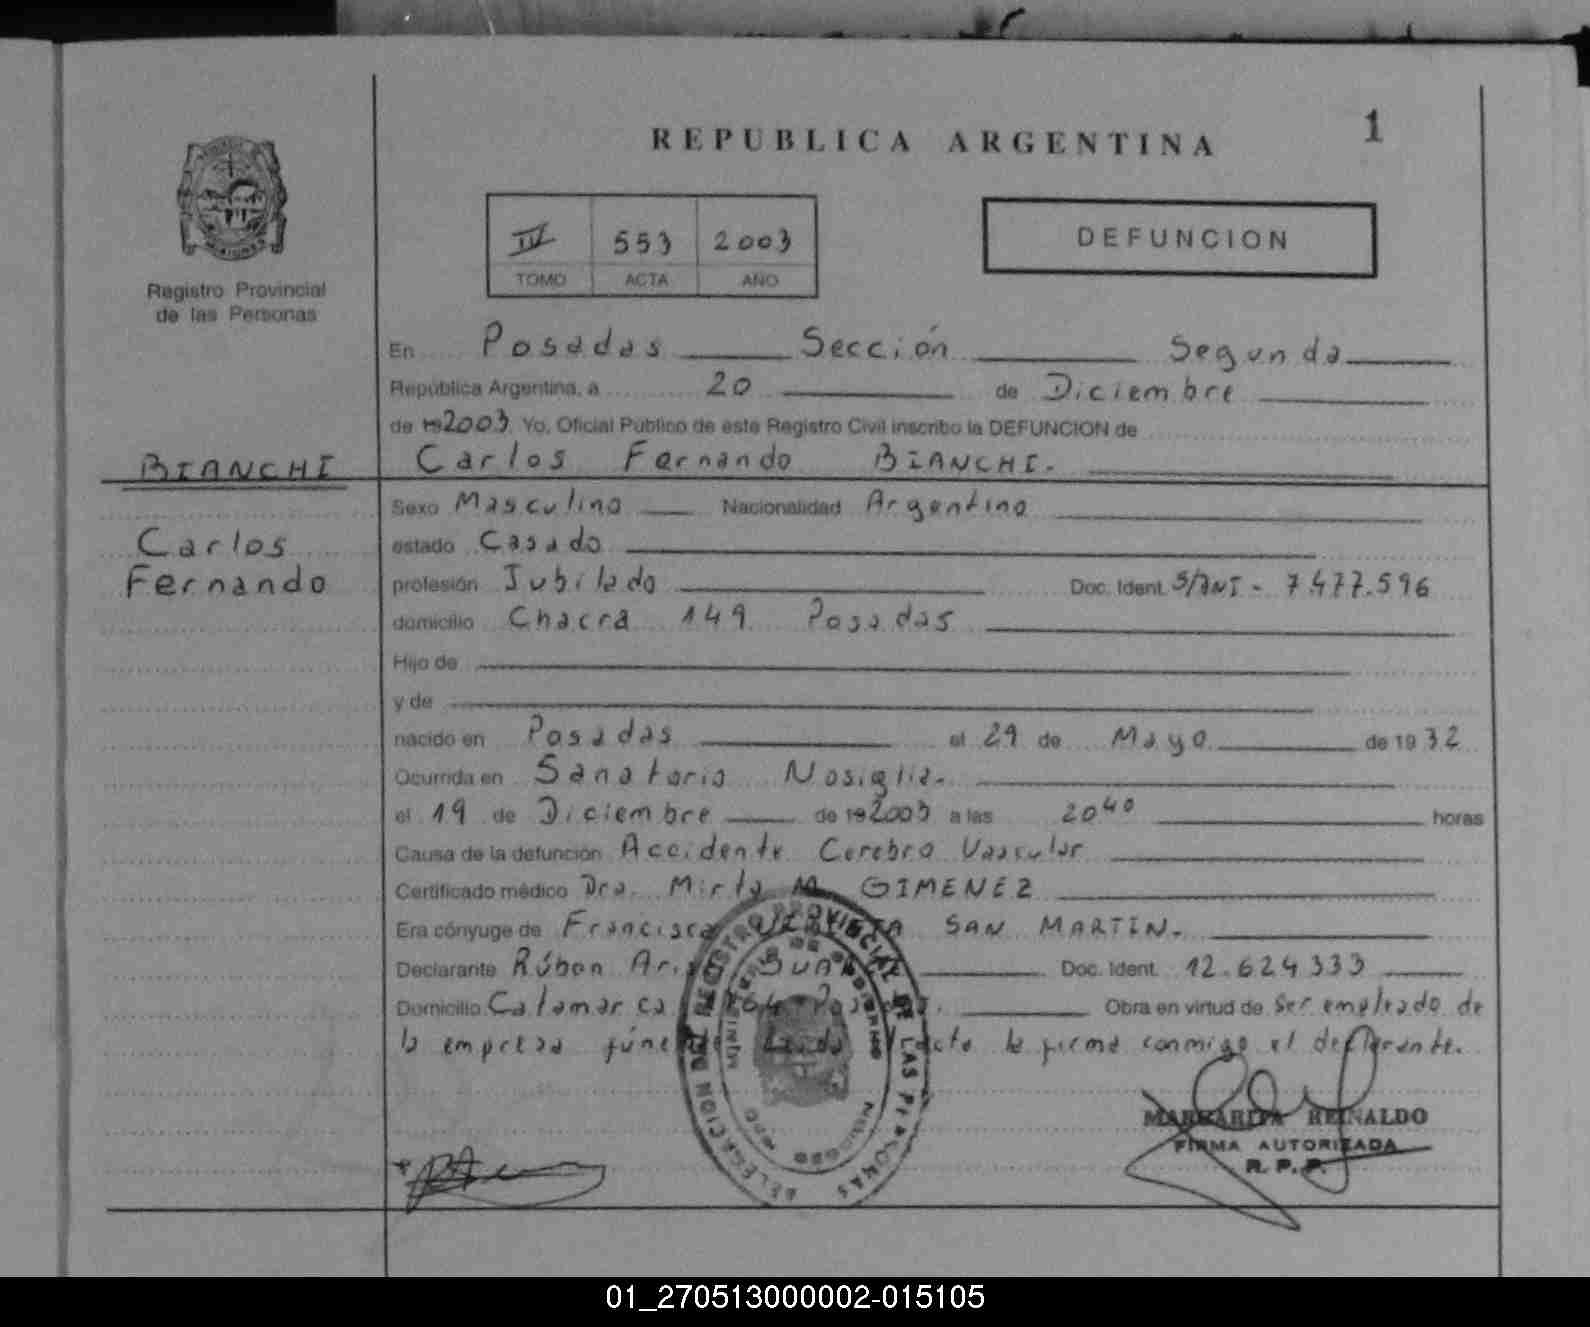 1
REPUBLICA ARGENTINA
IV 553 2003
TOMO ACTA AÑO
DEFUNCION
Registro Provincial
de las Personas
En Posadas Sección Segunda
República Argentina, a 20 de Diciembre
de 192003. Yo, Oficial Público de este Registro Civil inscribo la DEFUNCION de
BIANCHI Carlos Fernando BIANCHI.
Sexo Masculino Nacionalidad Argentino
Carlos estado Casado
Fernando profesión Jubilado Doc. Ident. S/DNI - 7.477.596
domicilio Chacra 149 Posadas
Hijo de
y de
nacido en Posadas el 29 de Mayo de 1932
Ocurrida en Sanatorio Nosiglia.
el 19 de Diciembre de 192003 a las 20 40 horas
Causa de la defunción Accidente Cerebro Vascular
Certificado médico Dra. Mirta M. GIMENEZ
Era cónyuge de Francisca SAN MARTIN.
Declarante Rúben Doc. Ident. 12.624.333
Domicilio Catamarca Obra en virtud de ser empleado de
la empresa conmigo el declarante.
DELEGACION DEL REGISTRO PROVINCIAL DE LAS PERSONAS
MARGARITA REINALDO
FIRMA AUTORIZADA
R. P. P.
01_270513000002-015105